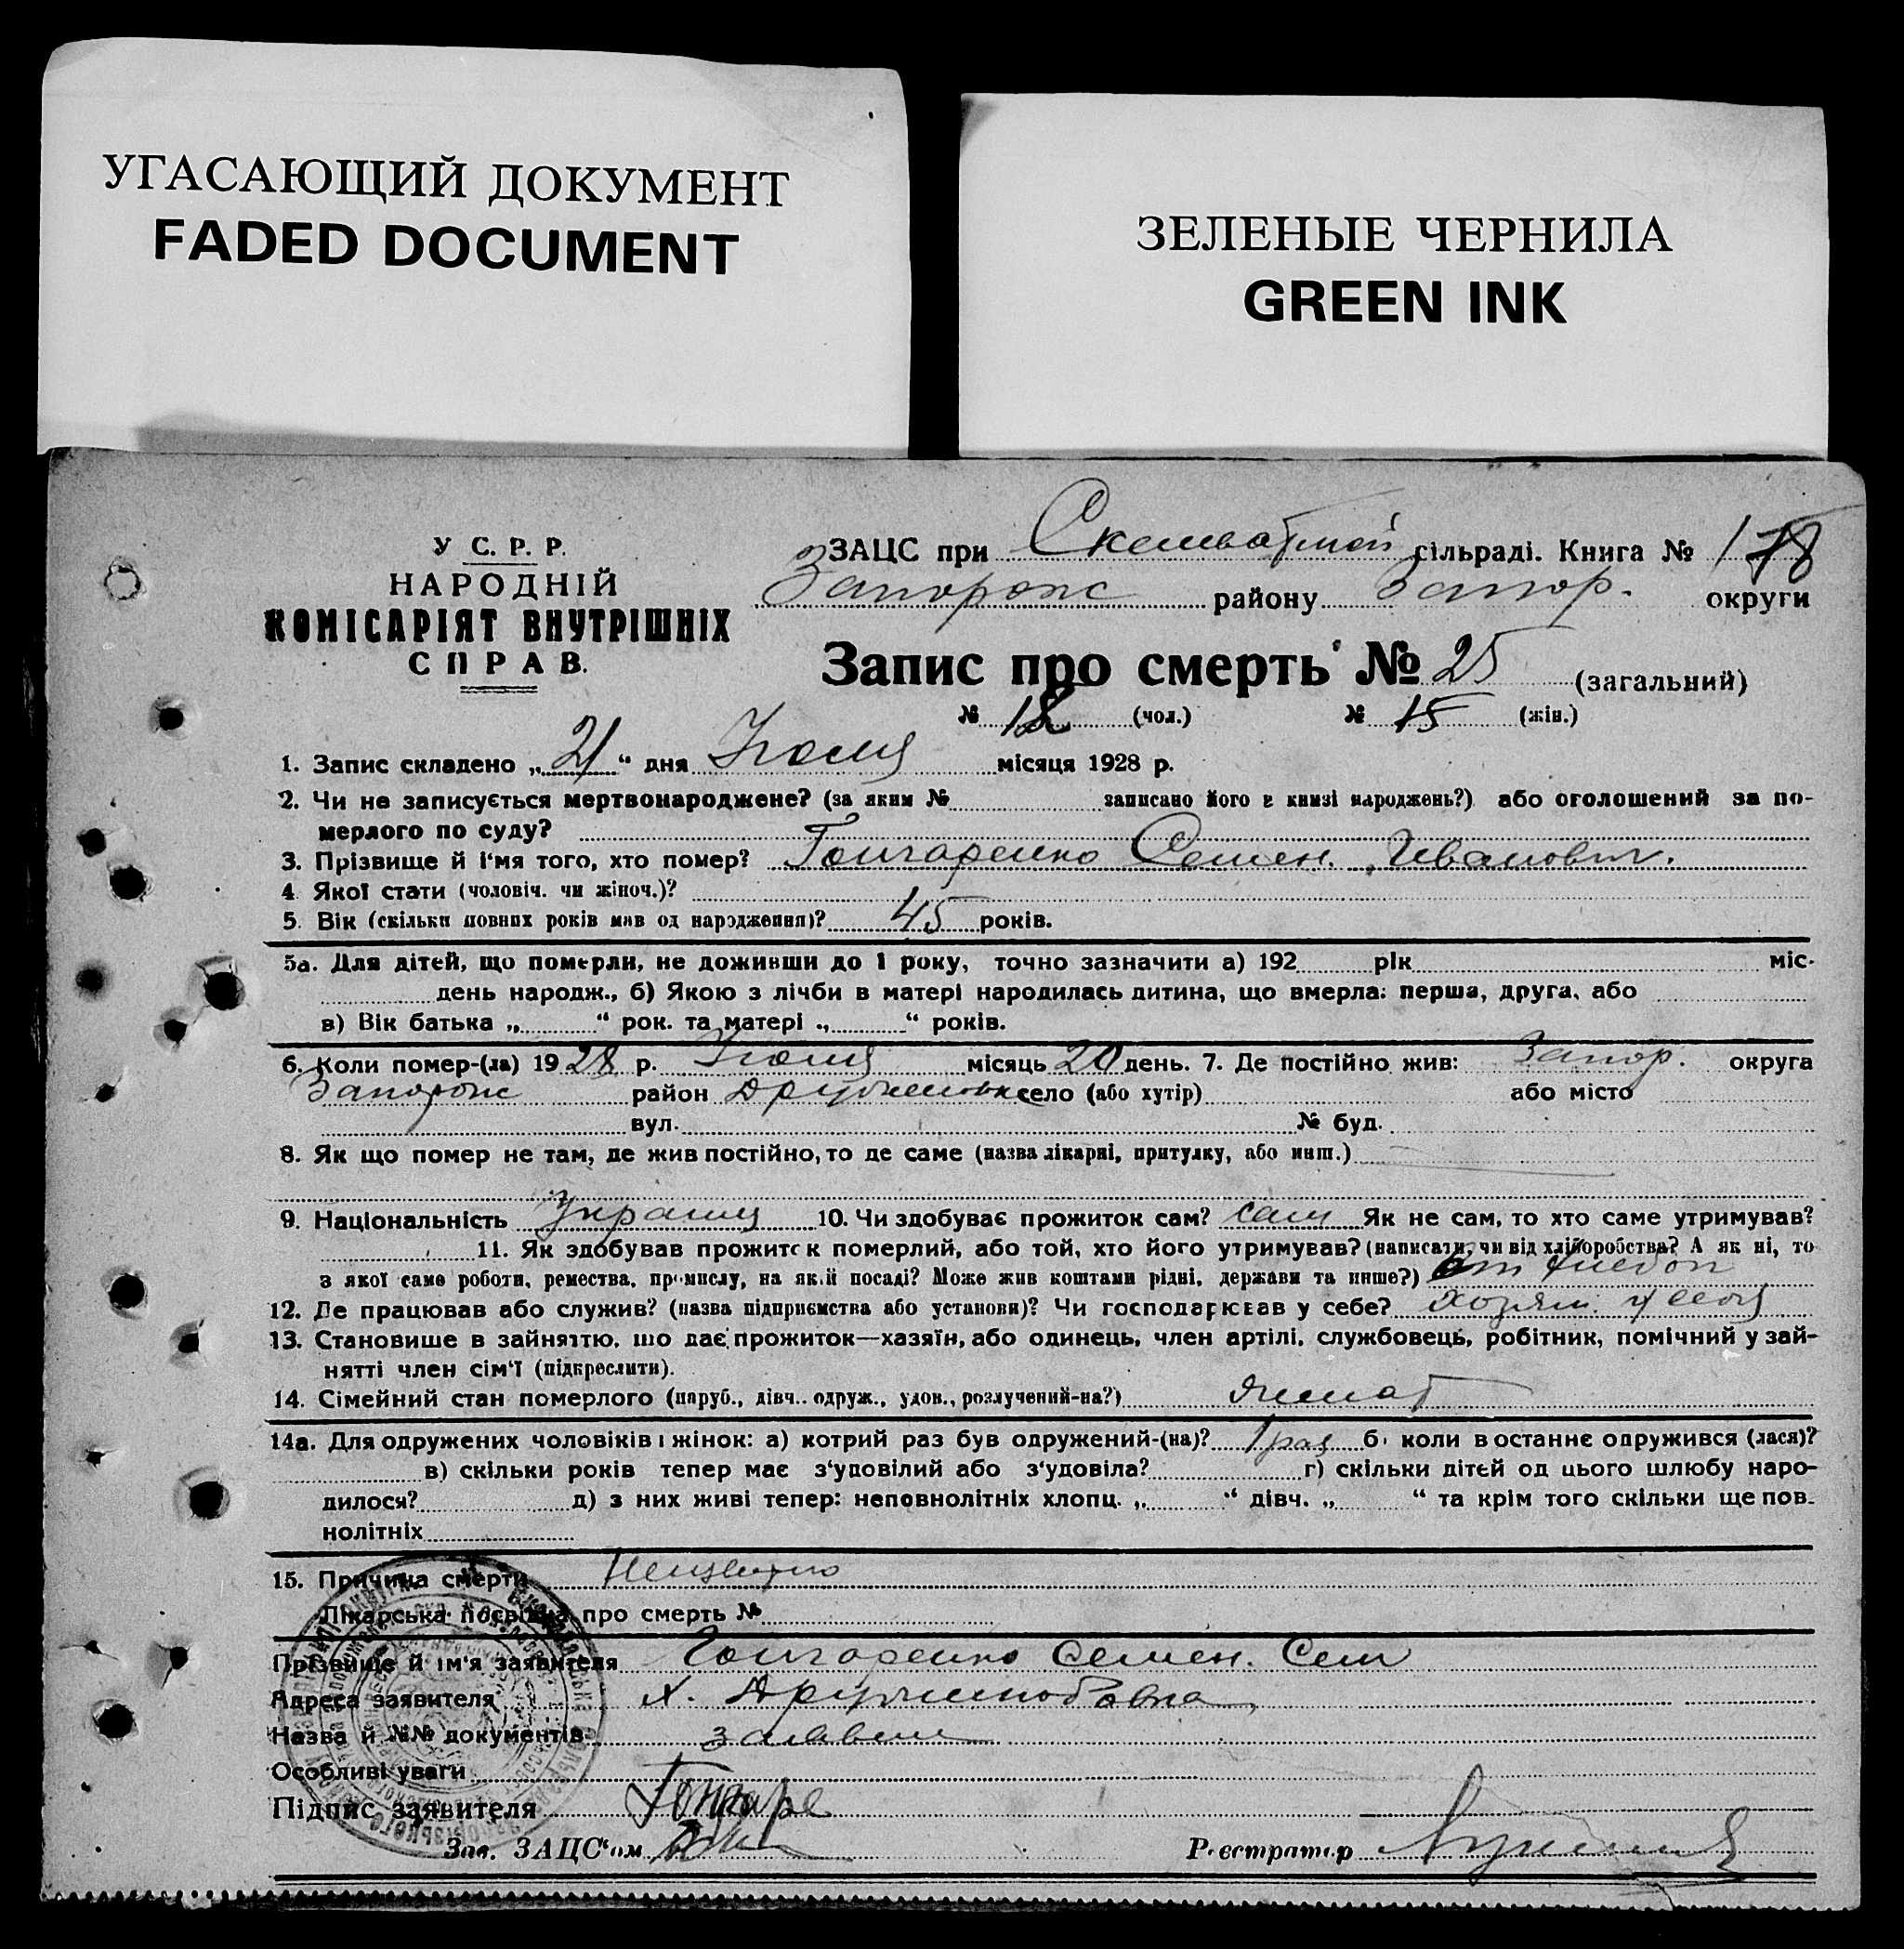 УГАСАЮЩИЙ ДОКУМЕНТ
FADED DOCUMENT
ЗЕЛЕНЫЕ ЧЕРНИЛА
GREEN INK
У С. Р. Р.
НАРОДНІЙ
КОМІСАРІЯТ ВНУТРІШНІХ
СПРАВ.
ЗАЦС при сільраді. Книга № 178
Запорожс району Запор. округи
Запис про смерть № 25 (загальний)
№ 18 (чол.) № 15 (жін.)
1. Запис складено „21“ дня Июля місяця 1928 р.
2. Чи не записується мертвонароджене? (за яким № записано його в книзі народжень?) або оголошений за по-
мерлого по суду?
3. Прізвище й і'мя того, хто помер? Гончаренко Семен Иванович.
4 Якої стати (чоловіч. чи жіноч.)?
5. Вік (скільки повних років мав од народження)? 45 років.
5а. Для дітей, що померли, не доживши до 1 року, точно зазначити а) 192 рік міс.
день народж., б) Якою з лічби в матері народилась дитина, що вмерла: перша, друга, або
в) Вік батька „ “ рок. та матері „ “ років.
6. Коли помер-(ла) 1928 р. Июля місяць 20 день. 7. Де постійно жив: Запор. округа
Запорожс район село (або хутір) або місто
вул. № буд.
8. Як що помер не там, де жив постійно, то де саме (назва лікарні, притулку, або инш.)
9. Національність 10. Чи здобуває прожиток сам? сам Як не сам, то хто саме утримував?
11. Як здобував прожиток померлий, або той, хто його утримував? (написати, чи від хліборобства? А як ні, то
з якої саме роботи, ремества, промислу, на якій посаді? Може жив коштами рідні, держави та инше?)
12. Де працював або служив? (назва підприємства або установи)? Чи господарював у себе?
13. Становище в зайняттю, що дає прожиток—хазяїн, або одинець, член артілі, службовець, робітник, помічний у зай-
нятті член сім'ї (підкреслити).
14. Сімейний стан померлого (паруб., дівч.. одруж., удов., розлучений-на?) женат
14а. Для одружених чоловіків і жінок: а) котрий раз був одружений-(на)? 1 раз б) коли востаннє одружився (лася)?
в) скільки років тепер має з'удовілий або з'удовіла? г) скільки дітей од цього шлюбу наро-
дилося? д) з них живі тепер: неповнолітніх хлопц. „ “ дівч. „ “ та крім того скільки ще пов-
нолітніх
15. Причина смерти
Лікарська посвідка про смерть №
Прізвище й ім'я заявителя Гончаренко Семен. Сем
Адреса заявителя х.
Назва й №№ документів
Особливі уваги
Підпис заявителя Гончаре
Зав. ЗАЦС'ом
Реєстратор